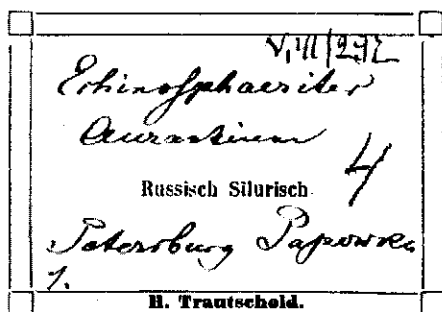 V, III/292
Echinosphaerites
Aurantium
4
Russisch Silurisch
Petersburg Papowka
1.
H. Trautschold.